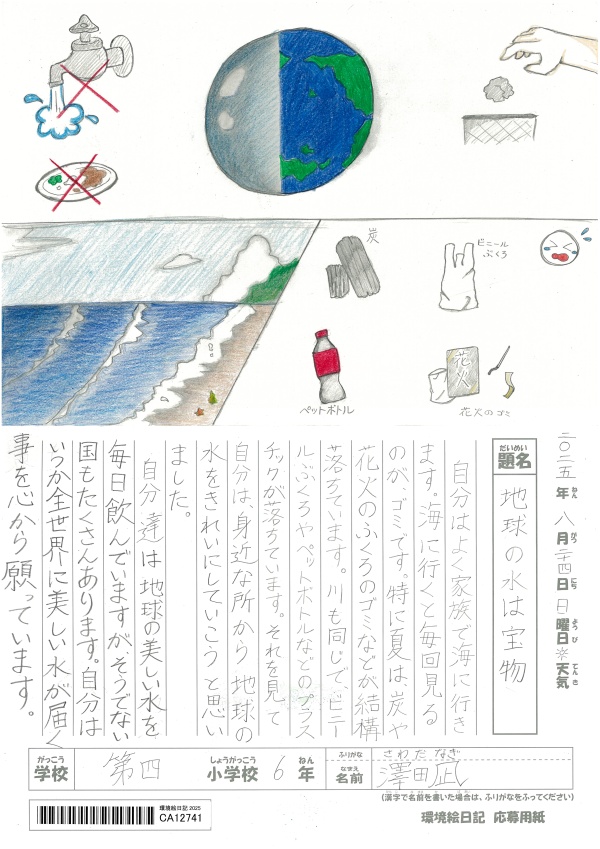 炭
ビニール
ぶくろ
ペットボトル
花火
花火のゴミ
二〇二五年ねん八月がつ二十四日にち日曜日ようび天気てんき
だいめい
題名
地球の水は宝物
自分はよく家族で海に行き
ます。海に行くと毎回見る
のが、ゴミです。特に夏は、炭や
花火のふくろのゴミなどが結構
落ちています。川も同じで、ビニー
ルぶくろやペットボトルなどのプラス
チックが落ちています。それを見て
自分は、身近な所から地球の
水をきれいにしていこうと思い
ました。
自分達は地球の美しい水を
毎日飲んでいますが、そうでない
国もたくさんあります。自分は
いつか全世界に美しい水が届く
事を心から願っています。
がっこう しょうがっこう ねん
学校 第四 小学校 6年
ふりがな さわだ なぎ
なまえ
名前 澤田凪
(漢字で名前を書いた場合は、ふりがなをふってください)
環境絵日記 2025
CA12741
環境絵日記 応募用紙